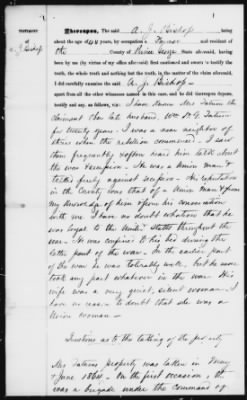 Testimony
of
A. J. Bishop
Thereupon, The said A. J. Bishop being
about the age of years, by occupation a Farmer and resident of
the County of Prince George State aforesaid, having
been by me (by virtue of my office aforesaid) first cautioned and sworn to testify the
truth, the whole truth and nothing but the truth, in the matter of the claim aforesaid,
I did carefully examine the said A. J. Bishop
apart from all the other witnesses named in this case, and he did thereupon depose,
testify and say, as follows, viz: I have known Mrs Tatum the
claimant & her late husband, Wm H G Tatum
for twenty years. I was a near neighbor of
theirs when the rebellion commenced. I saw
him frequently & often heard him talk about
the war & secession. He was a Union man &
talked freely against secession. His reputation
in the County was that of a Union man & from
my knowledge of him & from his conversation
with me I have no doubt whatever that he
was loyal to the United States throughout the
war. He was confined to his bed during the
latter part of the war. In the earlier part
of the war he was tolerably well, but he never
took any part whatever in the war. His
wife was a very quiet, silent woman. I
have no reason to doubt that she was a
Union woman.
Questions as to the taking of the property
Mrs Tatums property was taken in May
& June 1864. On the first occasion, it
was a brigade under the command of